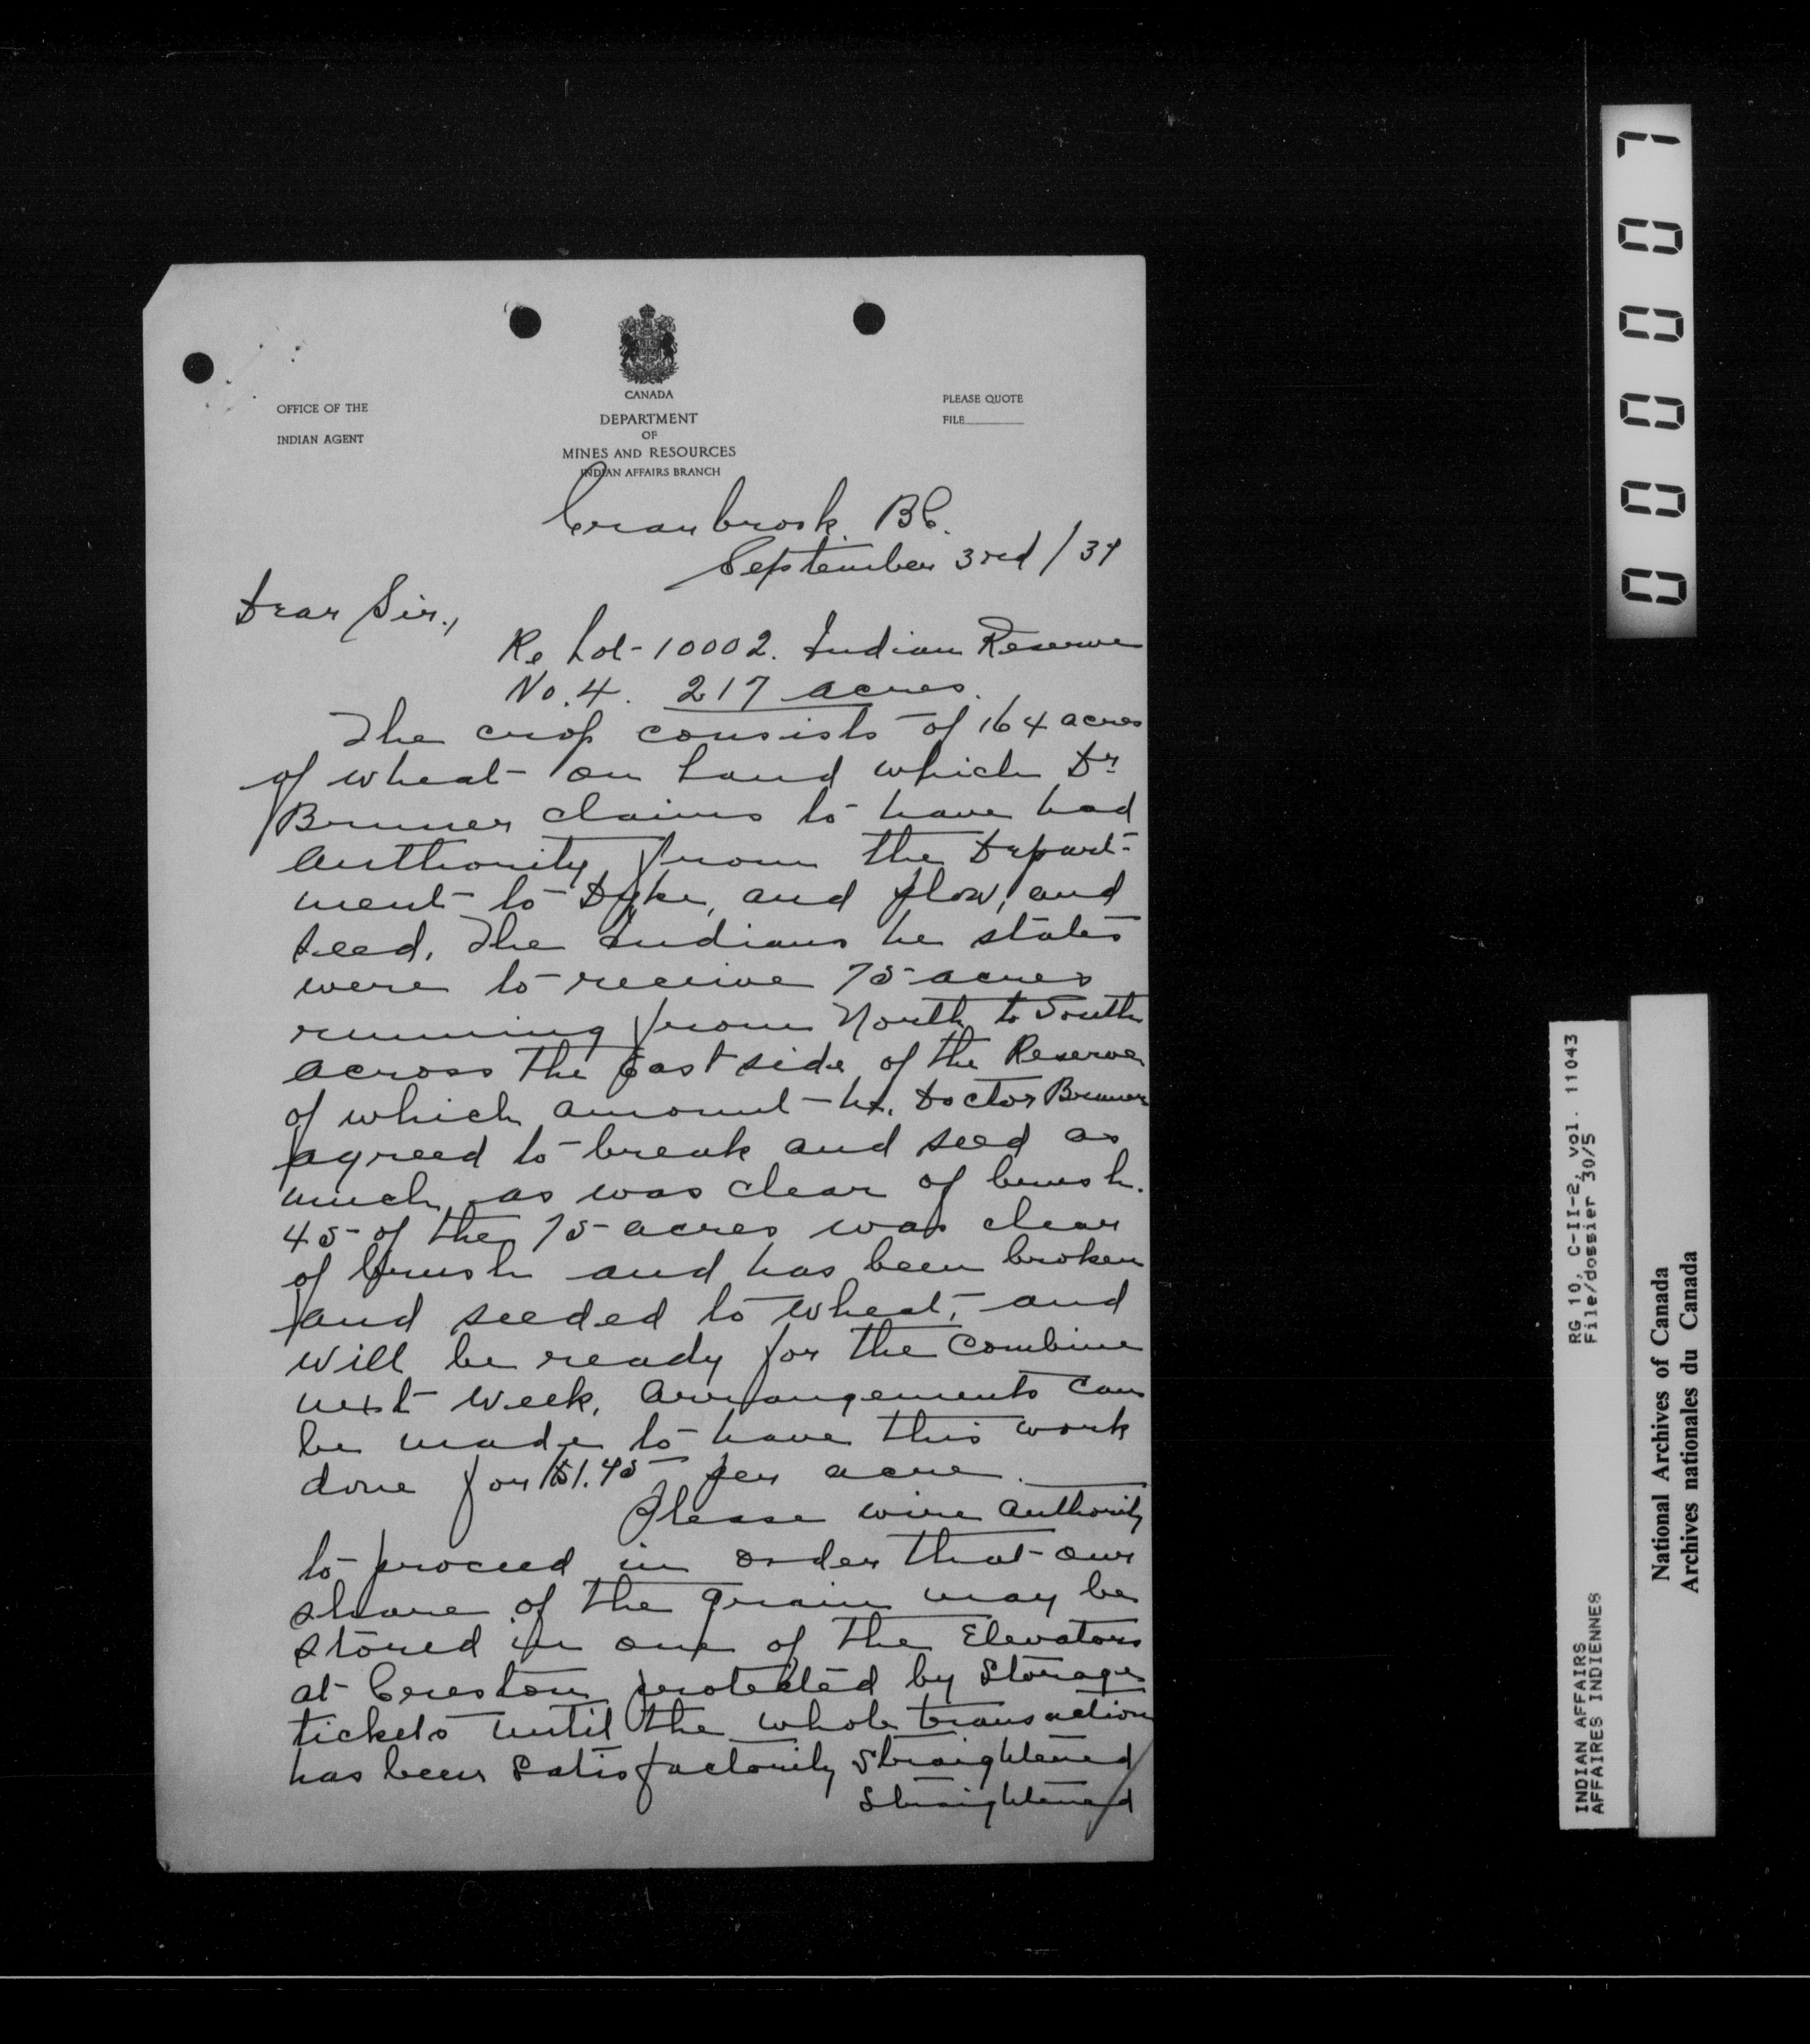 OFFICE OF THE
INDIAN AGENT
CANADA
DEPARTMENT
OF
MINES AND RESOURCES
INDIAN AFFAIRS BRANCH
PLEASE QUOTE
FILE
Cranbrook, BC.
September 3rd/37
Dear Sir.,
Re Lot-10002. Indian Reserve
No. 4. 217 acres.
The crop consists of 164 acres
of wheat on hand which Dr
Brunner claims to have had
authority from the Depart-
ment to Dyke, and plow, and
seed. The Indians he states
were to receive 75 acres
running from North to South
across the East side of the Reserve
of which amount he. Doctor Brunner
agreed to break and seed as
much as was clear of brush.
45 of the 75 acres was clear
of brush and has been broken
and seeded to wheat, and
will be ready for the combine
next week. Arrangements can
be made to have this work
done for $1.45 per acre.
Please wire authority
to proceed in order that our
share of the grain may be
stored in one of the Elevators
at Creston protected by Storage
tickets until the whole transaction
has been satisfactorily straightened
straightened
0 0 0 0 0 7
RG 10, C-II-2, vol. 11043
File/dossier 30/5
INDIAN AFFAIRS
AFFAIRES INDIENNES
National Archives of Canada
Archives nationales du Canada